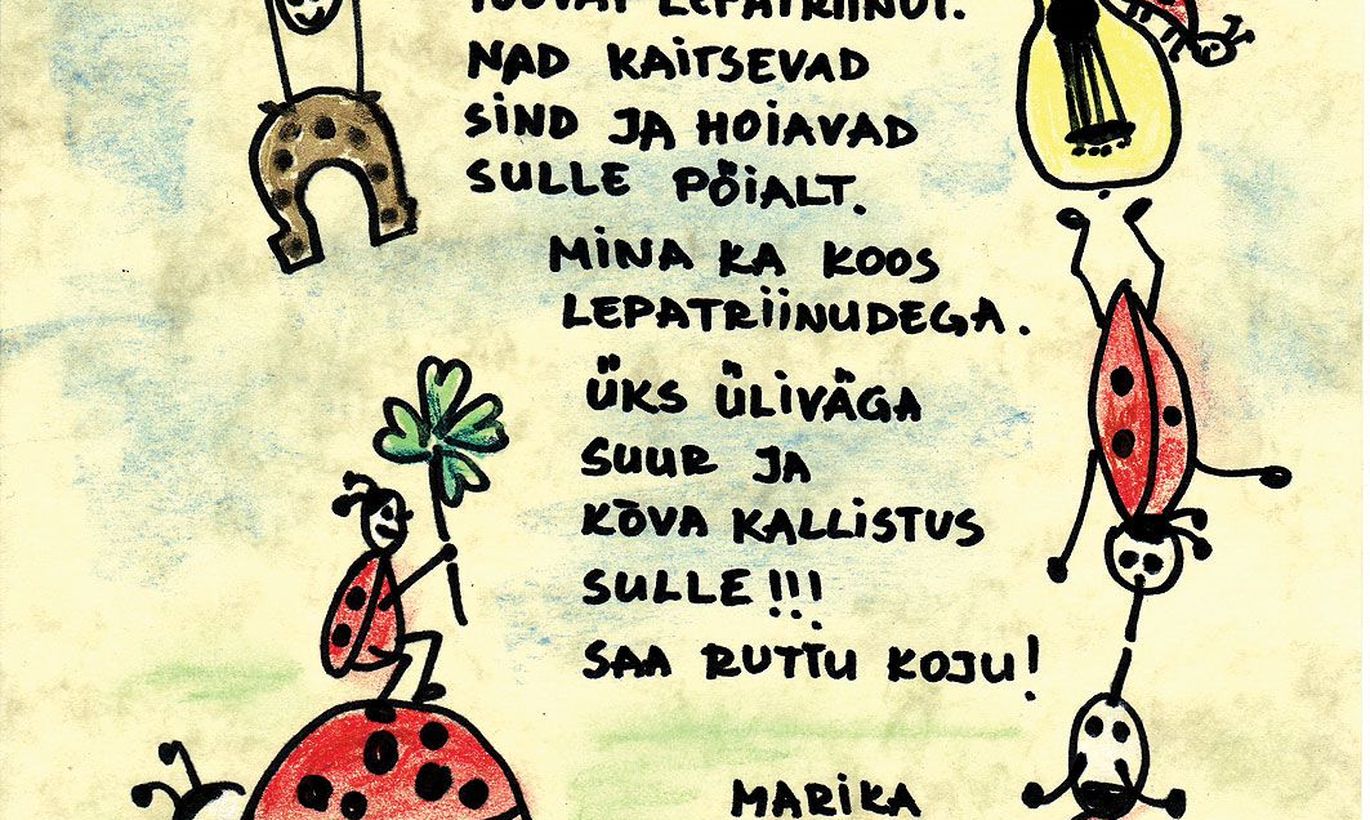 TOOVAD LEPATRIINUD.
NAD KAITSEVAD
SIND JA HOIAVAD
SULLE PÖIALT.
MINA KA KOOS
LEPATRIINUDEGA.
ÜKS ÜLIVÄGA
SUUR JA
KÕVA KALLISTUS
SULLE!!!
SAA RUTTU KOJU!
MARIKA